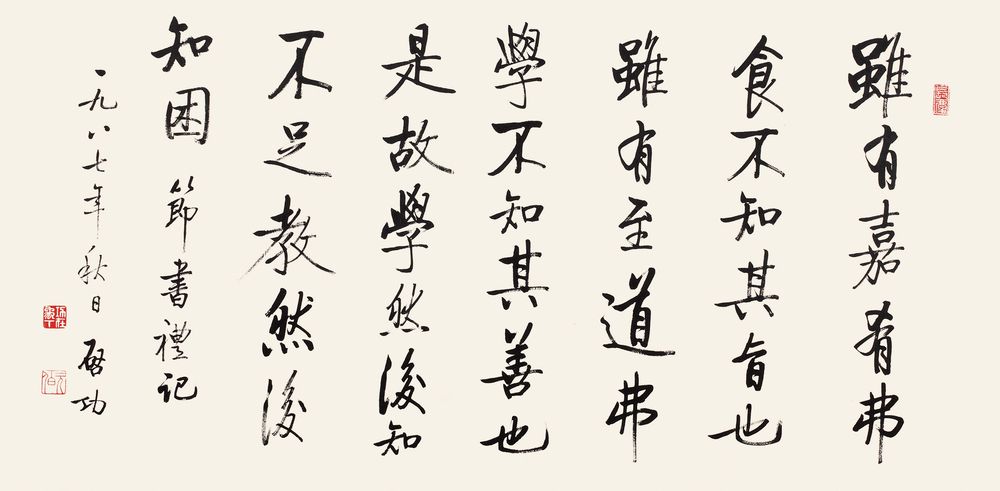 雖有嘉肴弗
食不知其旨也
雖有至道弗
學不知其善也
是故學然後知
不足教然後
知困 節書禮記
一九八七年秋日 啓功